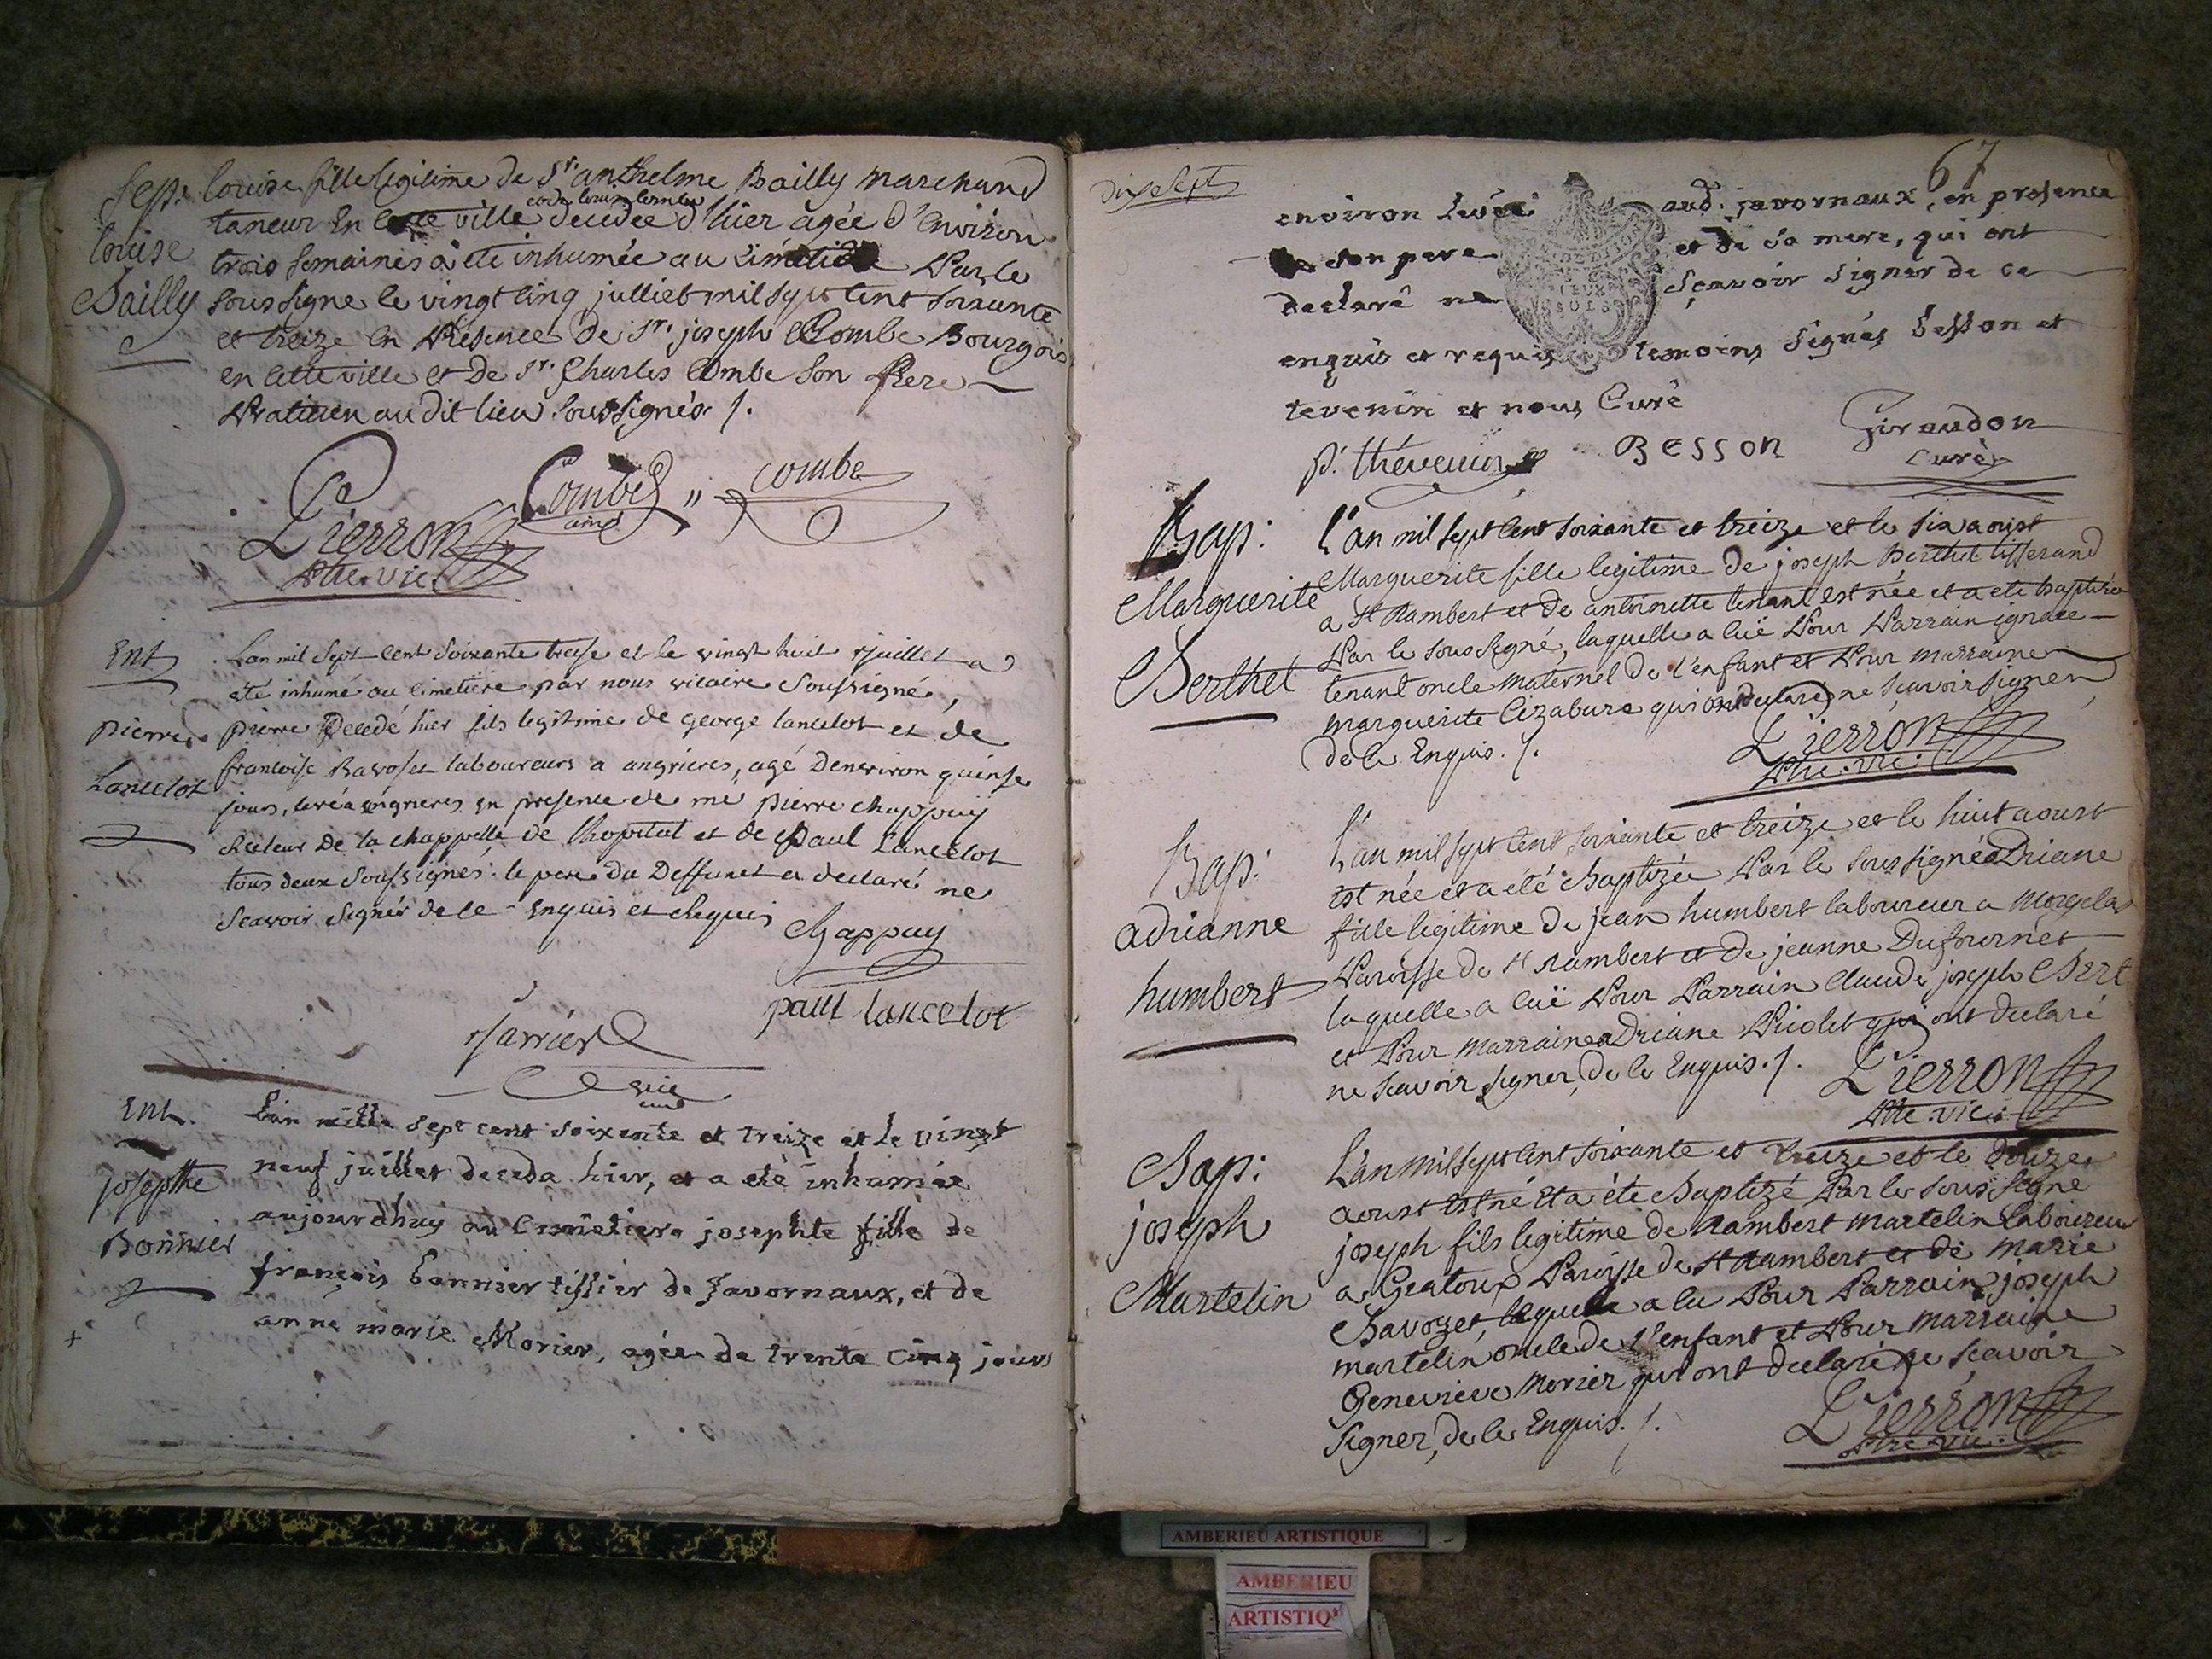 Sep:
louise
Bailly
louise fille legitime de Sr. anthelme Bailly marchand
taneur en cette ville decedée d'hier agée d'environ
trois semaines a été inhumée au cimetiere par le
soussigné le vingt cinq julliet mil sept cent soixante
et treize en présence de Sr. joseph Combe Bourgois
en cette ville et de Sr. Charles Combe son frere
praticien au dit lieu soussignés /.
Pierron
ptre. vic.
Combe
ainé
combe
Ent
pierre
Lancelot
Lan mil sept cent soixante treise et le vingt huit juillet a
eté inhumé au cimetiere par nous vicaire soussigné,
pierre decedé hier fils legitime de george lancelot et de
francoise Bavoset laboureurs a angrieres, agé denviron quinse
jours, levé a angrieres en presence de me pierre chappuy
Recteur de la chappelle de lhopital et de Paul Lancelot
tous deux soussignés: le pere du deffunct a declaré ne
scavoir signér de ce enquis et requis
Chappuy
paul lancelot
Jarrier
vic
Ent.
josephte
Bonnier
L'an mille sept cent soixente et treize et le vingt
neuf juillet deceda hier, et a eté inhumée
aujourdhuy au cimetiere josephte fille de
françois bonnier tissier de javornaux, et de
anne marie Morier, agée de trente cinq jours
67
dix sept
environ levée aud. javornaux, en presence
de son pere et de sa mere, qui ont
declaré ne sçavoir signer de ce
enquis et requis temoins signés besson et
tevenin et nous Curé
p. thévenin
BESSON
Giraudon
curé
Bap:
Marguerite
Berthet
l'an mil sept cent soixante et treize et le six aoust
Marguerite fille legitime de joseph Berthet tisserand
a St Rambert et de antoinette tenant est née et a eté baptisée
par le soussigné, laquelle a eüe pour parrain ignace
tenant oncle maternel de l'enfant et pour marraine
marguerite Cizabure qui ont declaré ne scavoir signer
de ce Enquis. /.
Pierron
ptre. vic.
Bap:
adrianne
humbert
l'an mil sept cent soixante et treize et le huit aoust
est née et a été Baptizée par le soussigné adriane
fille legitime de jean humbert laboureur a Morgelas
paroisse de St Rambert et de jeanne Dufournet
laquelle a eüe pour parrain Claude joseph Bert
et pour marraine adriane Piolet qui ont declaré
ne scavoir signer, de ce Enquis. /.
Pierron
ptre. vic.
Bap:
joseph
Martelin
L'an mil sept cent soixante et treize et le douze
aoust est né et a été Baptizé par le soussigné
joseph fils legitime de Rambert martelin laboureur
a Gratoux paroisse de St Rambert et de marie
Bavozet, lequel a eu pour parrain joseph
martelin oncle de l'enfant et pour marraine
Genevieve morier qui ont declaré ne scavoir
signer, de ce Enquis. /.
Pierron
ptre. vic.
AMBERIEU ARTISTIQUE
AMBERIEU
ARTISTIQ